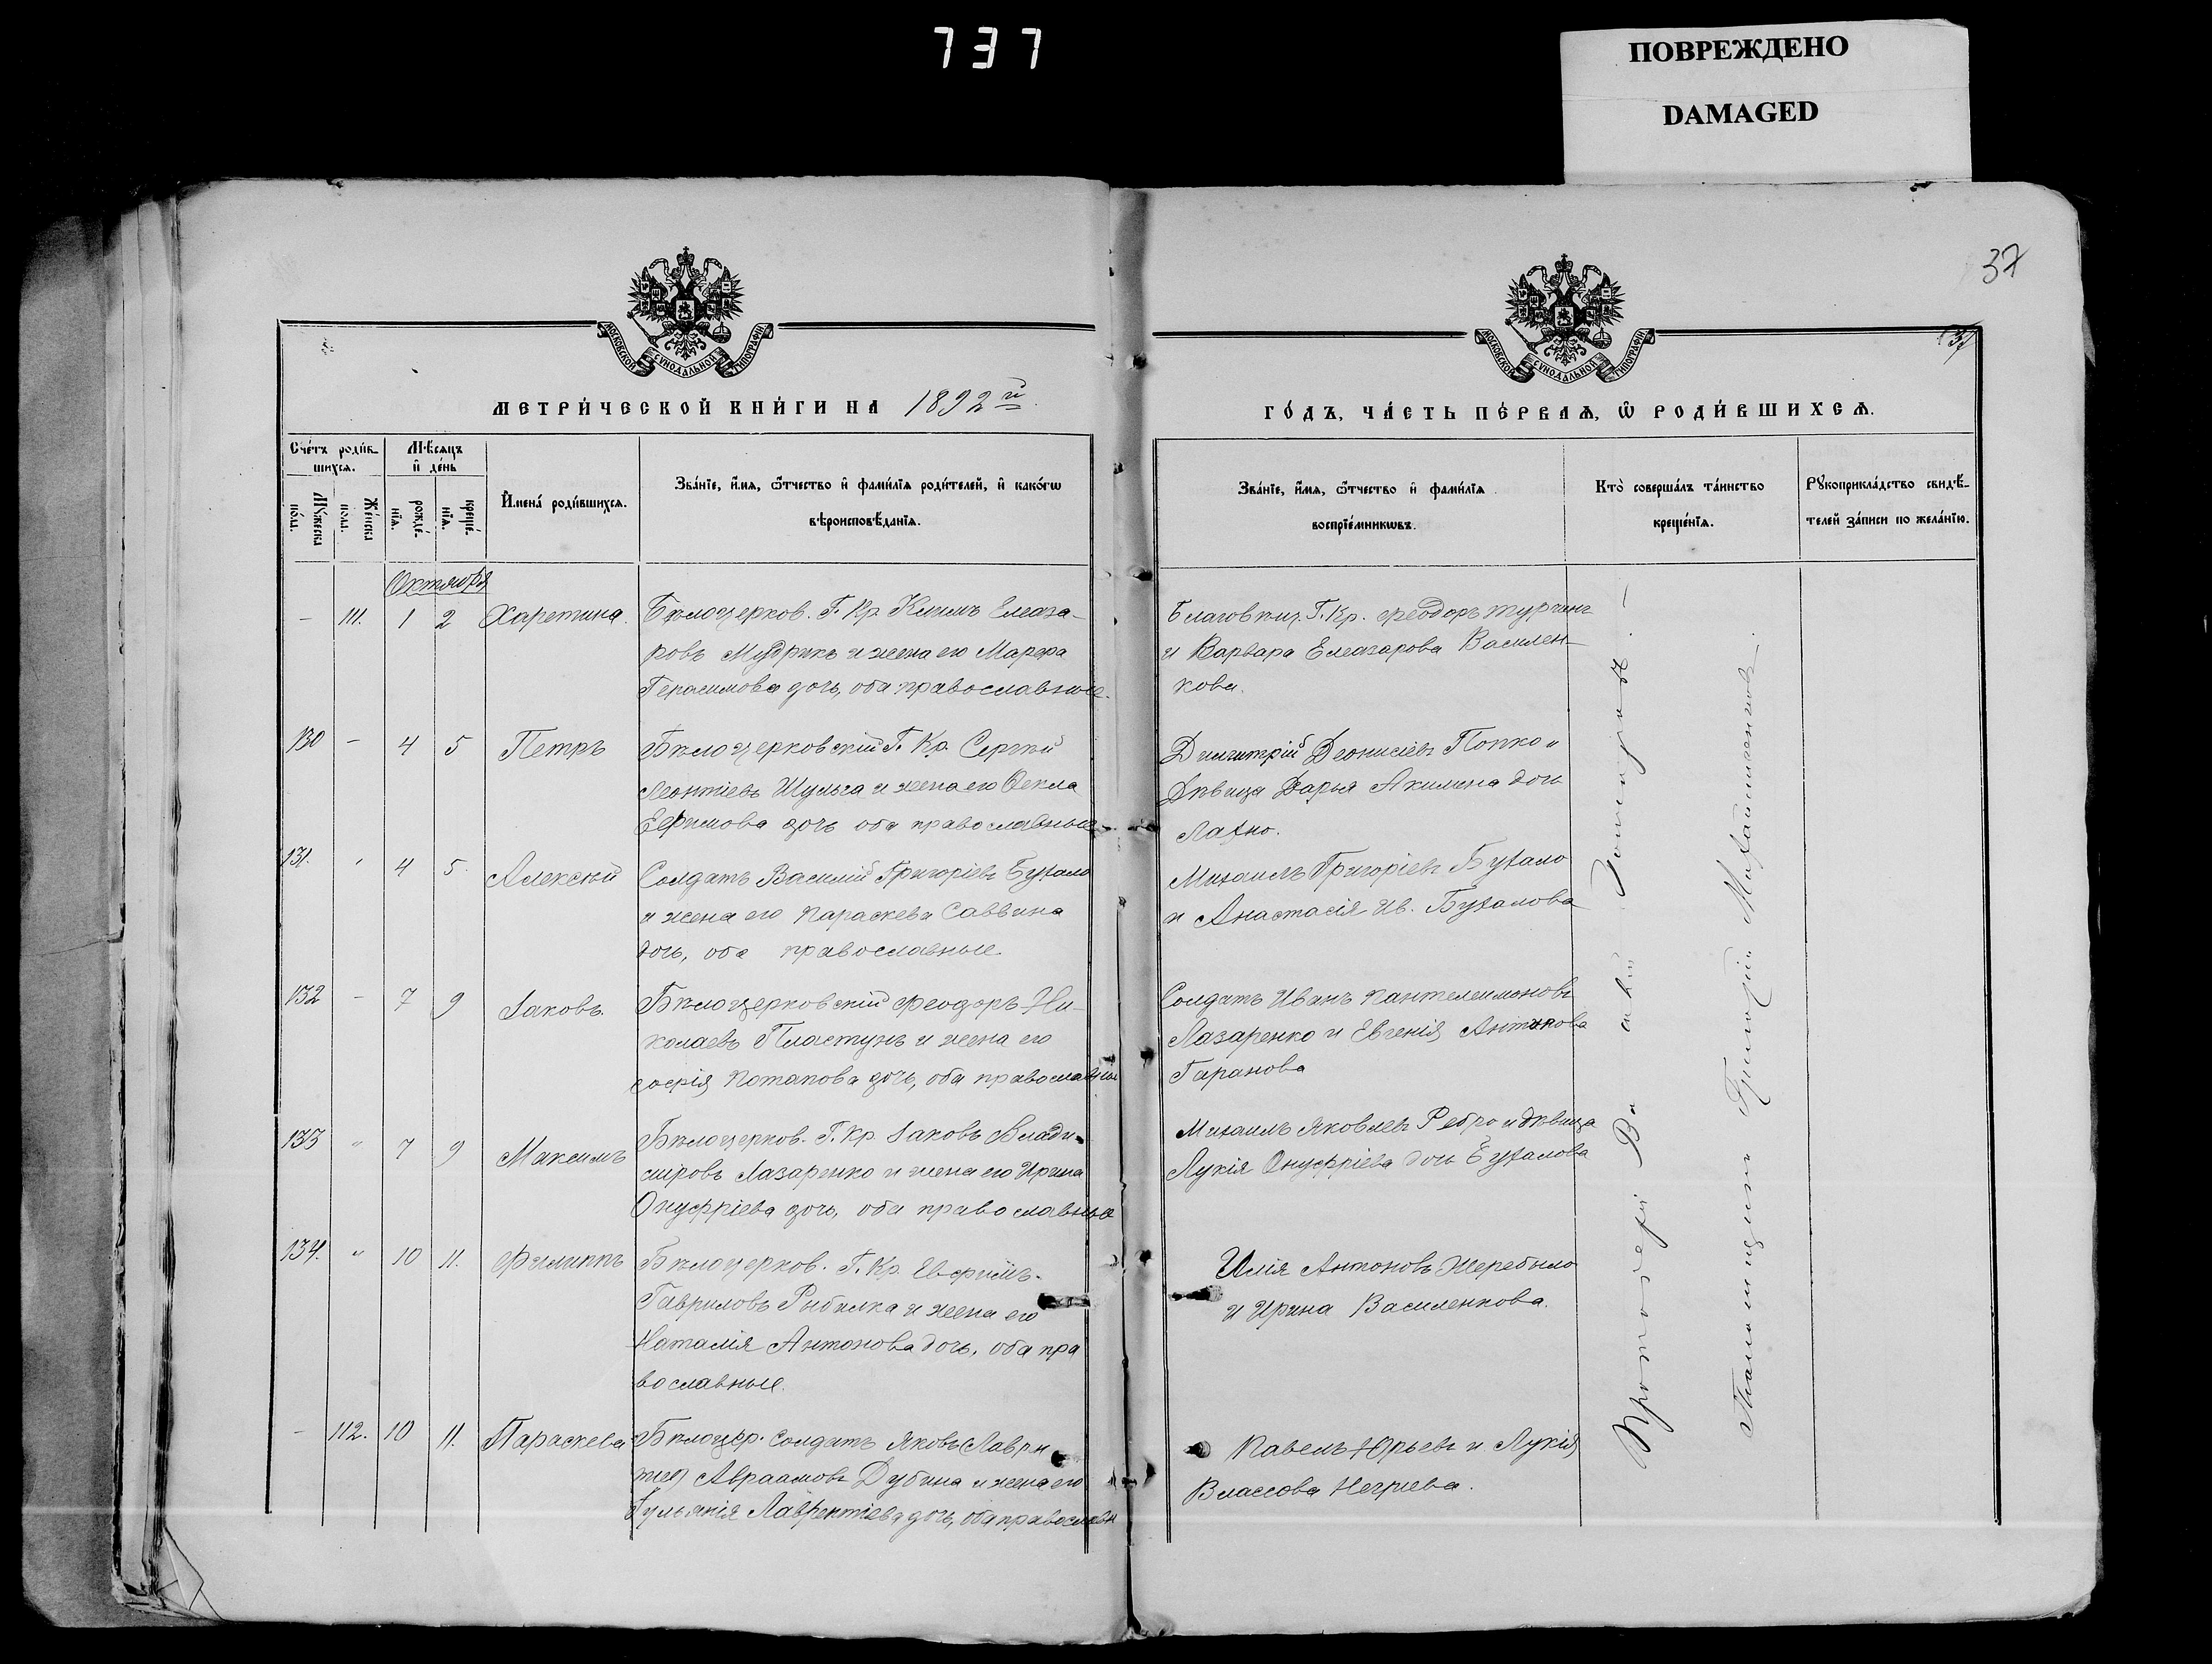 737
ПОВРЕЖДЕНО
DAMAGED
37
МОСКОВСКОЙ СѴНОДАЛЬНОЙ ТИПОГРАФІИ
МОСКОВСКОЙ СѴНОДАЛЬНОЙ ТИПОГРАФІИ
МЕТРИ́ЧЕСКОЙ КНИ́ГИ НА 1892й
ГО́ДЪ, ЧА́СТЬ ПЕ́РВАѦ, Ѿ РОДИ́ВШИХСѦ.
Сче́тъ роди́в-
шихсѧ.
Мѣ́сѧцъ
и҆ де́нь
Мꙋ́жеска по́ла.
Же́нска по́ла.
рожде́-
нїѧ.
креще́-
нїѧ.
И҆мена̀ роди́вшихсѧ.
Зва́нїе, и҆́мѧ, ѻ҆́тчество и҆ фами́лїѧ роди́телей, и҆ како́гѡ
вѣроисповѣ́данїѧ.
Зва́нїе, и҆́мѧ, ѻ҆́тчество и҆ фами́лїѧ
воспрїе́мникѡвъ.
Кто̀ соверша́лъ та́инство
креще́нїѧ.
Рꙋкоприкла́дство свидѣ́-
телей за́писи по жела́нїю.
Октября
- 111. 1 2 Харетина. Бѣлоцерков. Г. Кр. Климъ Елеаза-
ровъ Мудрикъ и жена его Марѳа
Герасимова дочь, оба православные.
Благовѣщ. Г. Кр. Ѳеодоръ Турчинъ
и Варвара Елеазарова Василен-
кова.
130 - 4 5 Петръ Бѣлоцерковскій Г. Кр. Сергѣй
Леонтіевъ Шульга и жена его Ѳекла
Ефимова дочь оба православные
Димитрій Деонисіевъ Попко и
Дѣвица Дарья Акимена дочь
Лахно.
131. 4 5. Алексѣй Солдатъ Василій Григоріевъ Бухало
и жена его Параскева Саввина
дочь, оба православные.
Михаилъ Григоріевъ Бухало
и Анастасія Ив. Бухалова
132 - 7 9 Іаковъ. Бѣлоцерковскій Ѳеодоръ Ни-
колаевъ Пластунъ и жена его
Софія Потапова дочь, оба православные
Солдатъ Иванъ Пантелеимоновъ
Лазаренко и Евгенія Антонова
Гаранова
133 " 7 9 Максимъ Бѣлоцерков. Г. Кр. Іаковъ Влади-
міровъ Лазаренко и жена его Ирина
Онуфріева дочь, оба православные
Михаилъ Яковлевъ Ребро и дѣвица
Лукія Онуфріева дочь Бухалова
134. " 10 11. Филиппъ Бѣлоцерков. Г. Кр. Евфимъ
Гавриловъ Рыбалка и жена его
Наталія Антонова дочь, оба пра
вославные.
Илія Антоновъ Жеребыло
и Ирина Василенкова.
- 112. 10 11. Параскева Бѣлоцер. солдатъ Яковъ
Авраамовъ Дубина и жена его
Іульянія Лаврентіева дочь, оба православн
Павелъ Юрьевъ и Лукія
Влассова Негріева.
Протоіерей
Псаломщикъ Григорій